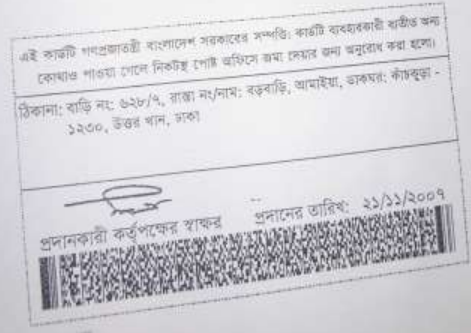 এই কার্ডটি গণপ্রজাতন্ত্রী বাংলাদেশ সরকারের সম্পত্তি। কার্ডটি ব্যবহারকারী ব্যতীত অন্য
কোথাও পাওয়া গেলে নিকটস্থ পোষ্ট অফিসে জমা দেয়ার জন্য অনুরোধ করা হলো।
ঠিকানা: বাড়ি নং: ৬২৮/৭, রাস্তা নং/নাম: বড়বাড়ি, আমাইয়া, ডাকঘর: কাঁচকুড়া -
১২৩০, উত্তর খান, ঢাকা
প্রদানকারী কর্তৃপক্ষের স্বাক্ষর প্রদানের তারিখ: ২১/১১/২০০৭